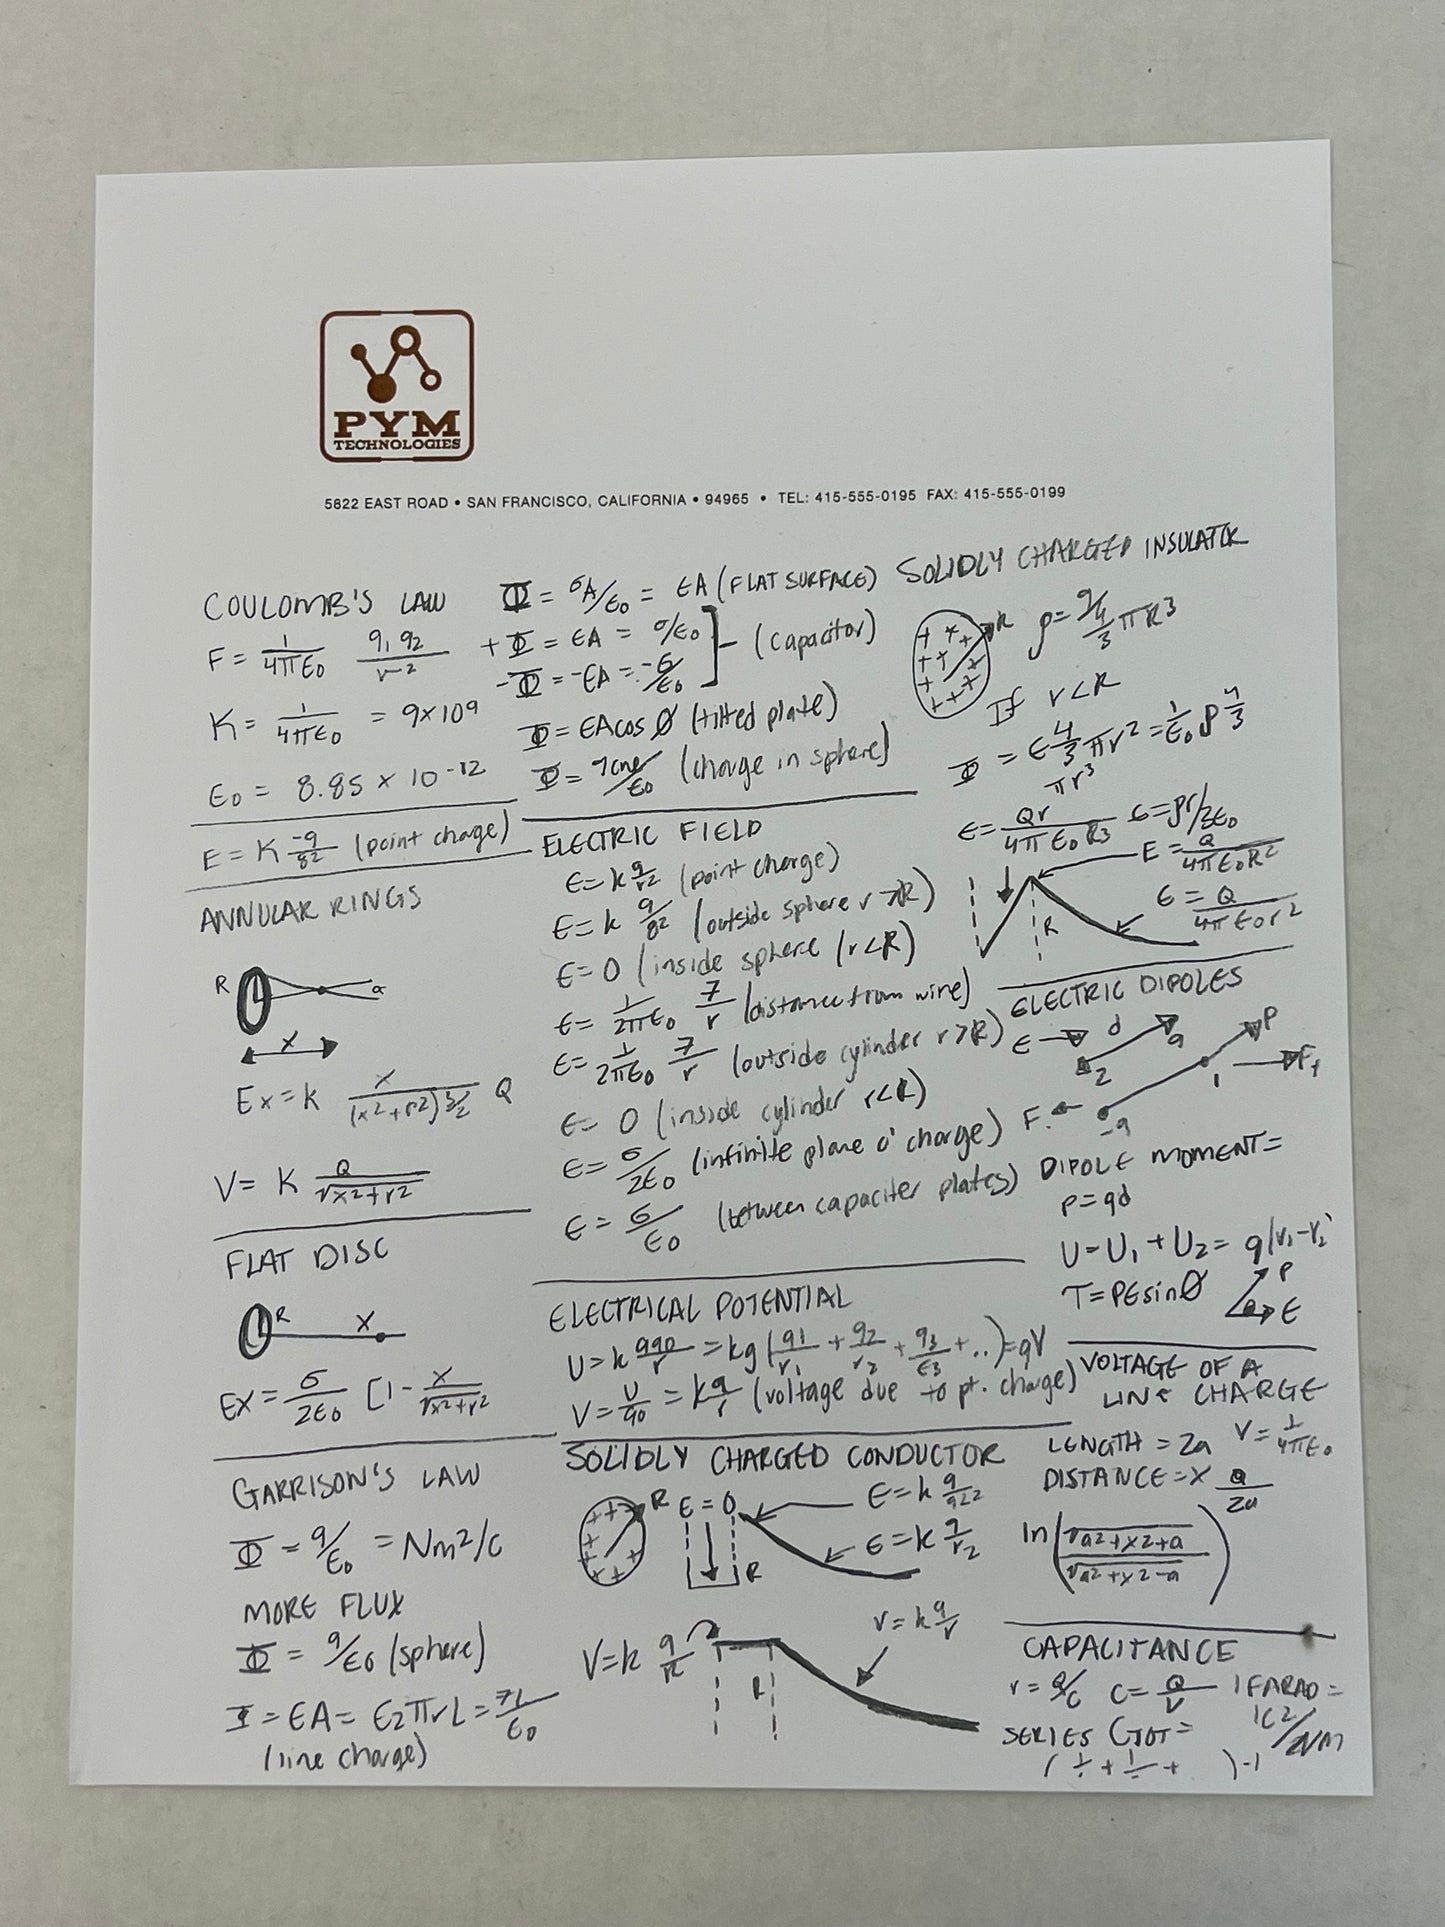 PYM
TECHNOLOGIES
5822 EAST ROAD • SAN FRANCISCO, CALIFORNIA • 94965 • TEL: 415-555-0195 FAX: 415-555-0199
COULOMB'S LAW
F = 1/4πε0 q1 q2/r2
K = 1/4πε0 = 9×109
ε0 = 8.85 × 10-12
E = K -q/82 (point charge)
ANNULAR RINGS
R
a
x
Ex = k x/(x2+r2)3/2 Q
V = K Q/√x2+r2
FLAT DISC
R
x
Ex = σ/2ε0 [1 - x/√x2+r2
GARRISON'S LAW
Φ = q/ε0 = Nm2/c
MORE FLUX
Φ = q/ε0 (sphere)
Φ = EA = E2πrL = 7L/ε0
(line charge)
Φ = σA/ε0 = EA (FLAT SURFACE)
+Φ = EA = σ/ε0
-Φ = -EA = -σ/ε0
(capacitor)
Φ = EAcos Ø (tilted plate)
Φ = qenc/ε0 (charge in sphere)
ELECTRIC FIELD
E = k q/r2 (point charge)
E = k q/82 (outside sphere r>R)
E = 0 (inside sphere (r<R)
E = 1/2πε0 7/r (distance from wire)
E = 1/2πε0 7/r (outside cylinder r>R)
E = 0 (inside cylinder r<R)
E = σ/2ε0 (infinite plane o' charge)
E = σ/ε0 (between capaciter plates)
ELECTRICAL POTENTIAL
U = k qq0/r = kq (q1/r1 + q2/r2 + q3/r3 + ..) = qV
V = U/q0 = k q/r (voltage due to pt. charge)
SOLIDLY CHARGED CONDUCTOR
R E = 0
E = k q/r2
R
V = k q/R
V = k q/r
R
SOLIDLY CHARGED INSULATOR
R
ρ = q/4/3 πR3
If r<R
Φ = E 4/3 πr2 = 1/ε0 ρ 4/3
πr3
E = Qr/4πε0R3 E = ρr/3ε0
E = Q/4πε0R2
E = Q/4πε0r2
R
ELECTRIC DIPOLES
E d q P
2 1 F+
F- -q
DIPOLE MOMENT =
P = qd
U = U1 + U2 = q(V1-V2)
T = PEsinØ
P
E
VOLTAGE OF A
LINE CHARGE
LENGTH = 2a V = 1/4πε0
DISTANCE = X Q/2a
ln(√a2+x2+a/√a2+x2-a)
CAPACITANCE
V = Q/C C = Q/V 1 FARAD =
1C2/NM
SERIES CTOT =